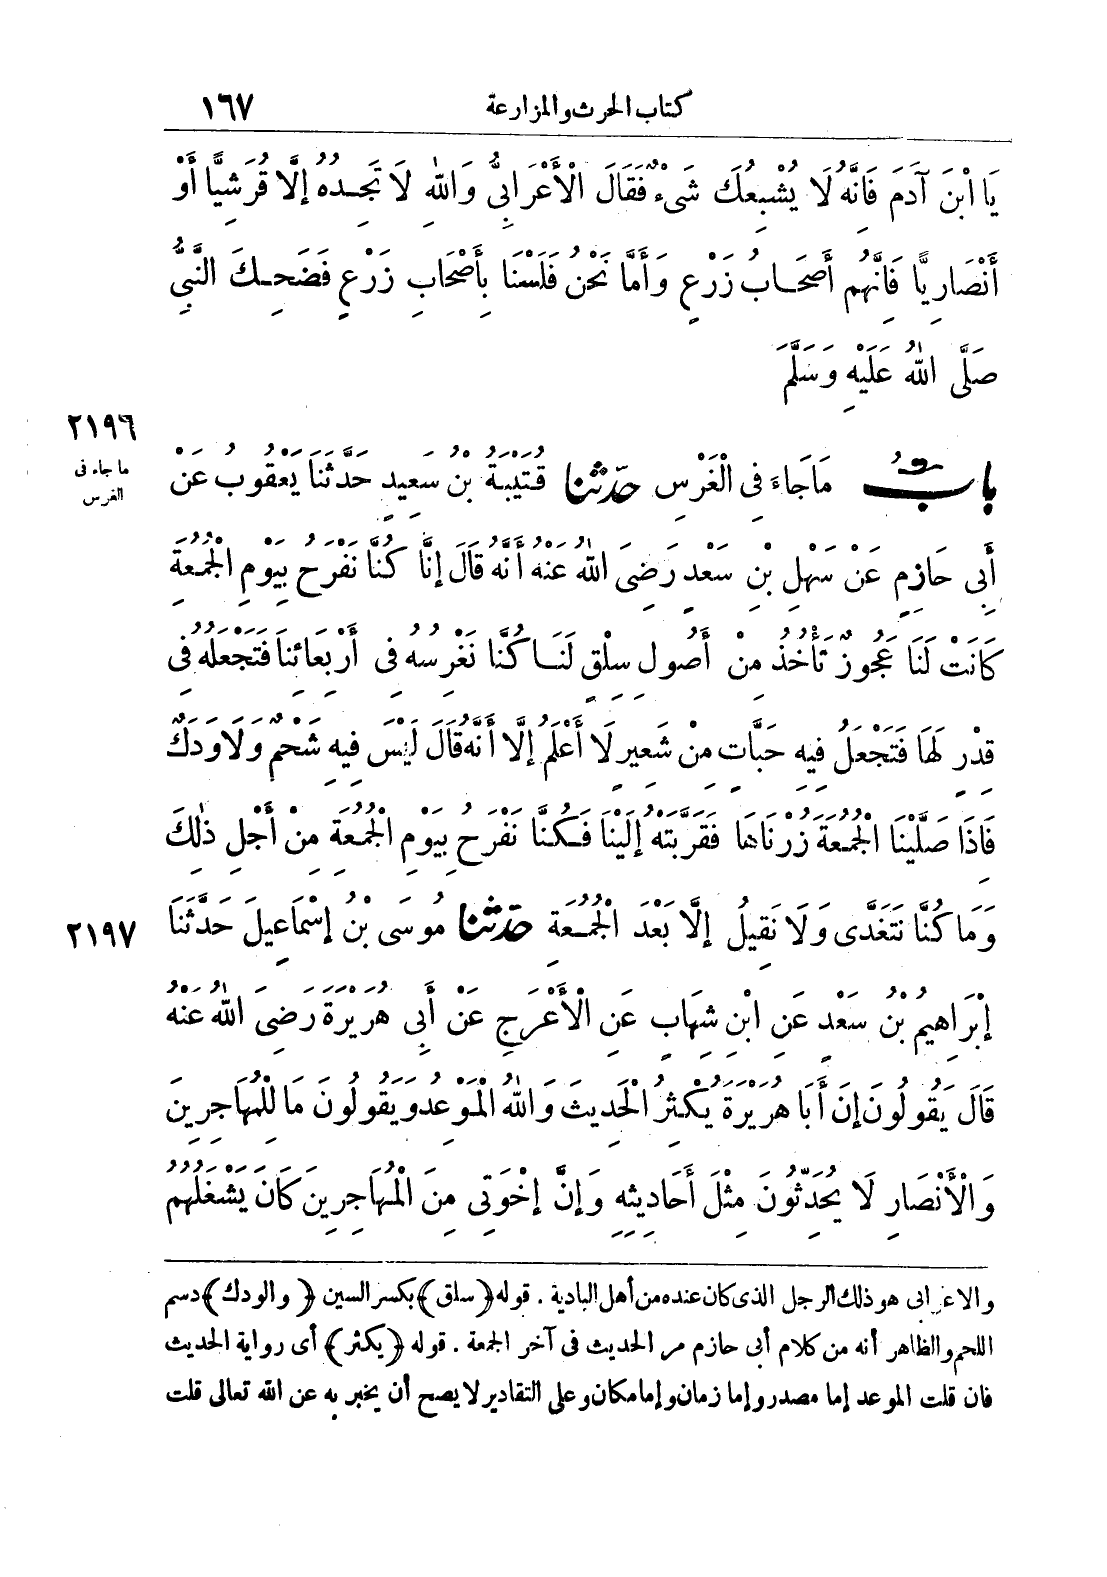 كتاب الحرث والمزارعة ١٦٧
يَا ابْنَ آدَمَ فَانَّهُ لَا يُشْبِعُكَ شَىْءٌ فَقَالَ الْأَعْرَابِىُّ وَاللّٰهِ لَا تَجِدُهُ إِلَّا قُرَشِيًّا أَوْ
أَنْصَارِيًّا فَانَّهُم أَصْحَابُ زَرْعٍ وَأَمَّا نَحْنُ فَلَسْنَا بِأَصْحَابِ زَرْعٍ فَضَحِكَ النَّبِىُّ
صَلَّى اللّٰهُ عَلَيْهِ وَسَلَّمَ
٢١٩٦
ما جاء فى
الغرس
بابُ مَا جَاءَ فِى الْغَرْسِ حَدَّثَنَا قُتَيْبَةُ بْنُ سَعِيدٍ حَدَّثَنَا يَعْقُوبُ عَنْ
أَبِى حَازِمٍ عَنْ سَهْلِ بْنِ سَعْدٍ رَضِىَ اللّٰهُ عَنْهُ أَنَّهُ قَالَ إِنَّا كُنَّا نَفْرَحُ بِيَوْمِ الْجُمُعَةِ
كَانَتْ لَنَا عَجُوزٌ تَأْخُذُ مِنْ أُصُولِ سِلْقٍ لَنَا كُنَّا نَغْرِسُهُ فِى أَرْبِعَائِنَا فَتَجْعَلُهُ فِى
قِدْرٍ لَهَا فَتَجْعَلُ فِيهِ حَبَّاتٍ مِنْ شَعِيرٍ لَا أَعْلَمُ إِلَّا أَنَّهُ قَالَ لَيْسَ فِيهِ شَحْمٌ وَلَا وَدَكٌ
فَاذَا صَلَّيْنَا الْجُمُعَةَ زُرْنَاهَا فَقَرَّبَتْهُ إِلَيْنَا فَكُنَّا نَفْرَحُ بِيَوْمِ الْجُمُعَةِ مِنْ أَجْلِ ذٰلِكَ
وَمَا كُنَّا نَتَغَدَّى وَلَا نَقِيلُ إِلَّا بَعْدَ الْجُمُعَةِ حَدَّثَنَا مُوسَى بْنُ إِسْمَاعِيلَ حَدَّثَنَا
٢١٩٧
إِبْرَاهِيمُ بْنُ سَعْدٍ عَنِ ابْنِ شِهَابٍ عَنِ الْأَعْرَجِ عَنْ أَبِى هُرَيْرَةَ رَضِىَ اللّٰهُ عَنْهُ
قَالَ يَقُولُونَ إِنَّ أَبَا هُرَيْرَةَ يُكْثِرُ الْحَدِيثَ وَاللّٰهُ الْمَوْعِدُ وَيَقُولُونَ مَا لِلْمُهَاجِرِينَ
وَالْأَنْصَارِ لَا يُحَدِّثُونَ مِثْلَ أَحَادِيثِهِ وَإِنَّ إِخْوَتِى مِنَ الْمُهَاجِرِينَ كَانَ يَشْغَلُهُمُ
والاعرابى هو ذلك الرجل الذى كان عنده من أهل البادية . قوله (سلق) بكسر السين (والودك) دسم
اللحم والظاهر أنه من كلام أبى حازم مر الحديث فى آخر الجمعة . قوله (يكثر) أى رواية الحديث
فان قلت الموعد إما مصدر وإما زمان وإما مكان وعلى التقادير لا يصح أن يخبر به عن الله تعالى قلت